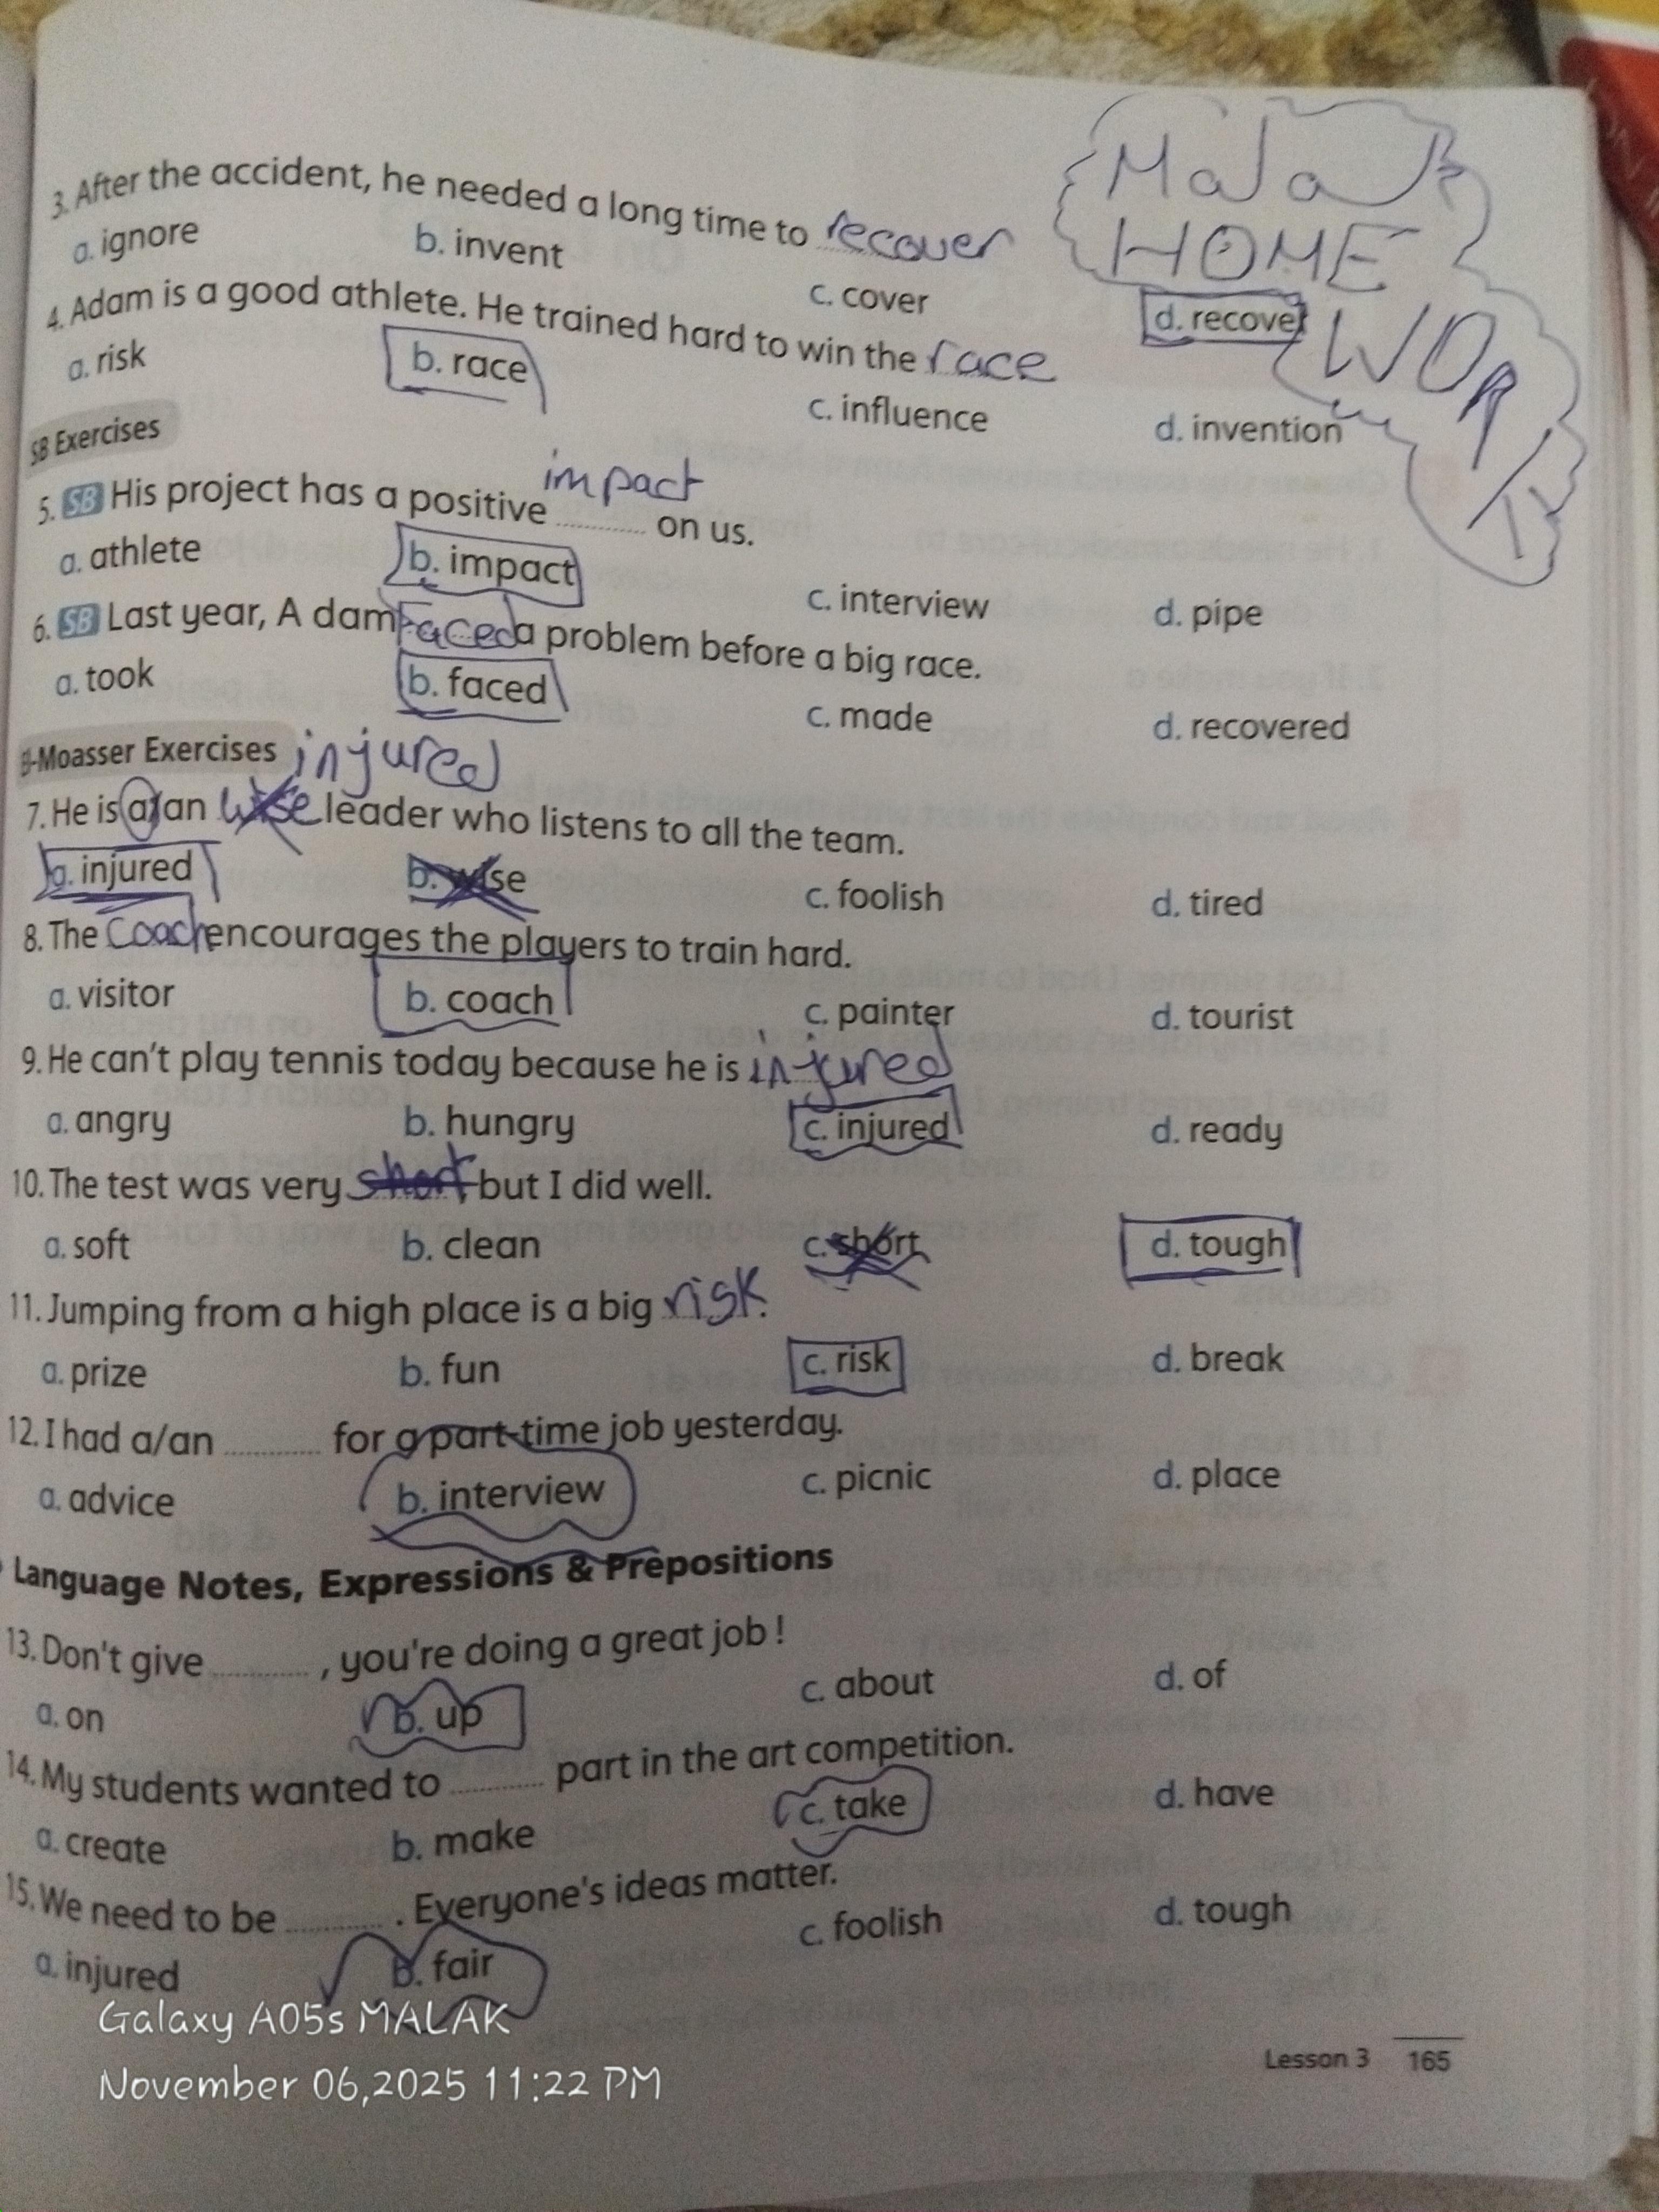 Malak
HOME
WORK
3. After the accident, he needed a long time to recover
a. ignore b. invent c. cover d. recover
4. Adam is a good athlete. He trained hard to win the race
a. risk b. race c. influence d. invention
SB Exercises
impact
5. SB His project has a positive .......... on us.
a. athlete b. impact c. interview d. pipe
6. SB Last year, A dam Faced a problem before a big race.
a. took b. faced c. made d. recovered
El-Moasser Exercises injured
7. He is a/an wise leader who listens to all the team.
a. injured b. wise c. foolish d. tired
8. The Coach encourages the players to train hard.
a. visitor b. coach c. painter d. tourist
9. He can't play tennis today because he is injured
a. angry b. hungry c. injured d. ready
10. The test was very short, but I did well.
a. soft b. clean c. short d. tough
11. Jumping from a high place is a big risk.
a. prize b. fun c. risk d. break
12. I had a/an .......... for a part-time job yesterday.
a. advice b. interview c. picnic d. place
Language Notes, Expressions & Prepositions
13. Don't give .......... , you're doing a great job !
a. on b. up c. about d. of
14. My students wanted to .......... part in the art competition.
a. create b. make c. take d. have
15. We need to be .......... . Everyone's ideas matter.
a. injured b. fair c. foolish d. tough
Galaxy A05s MALAK
November 06,2025 11:22 PM
Lesson 3 165